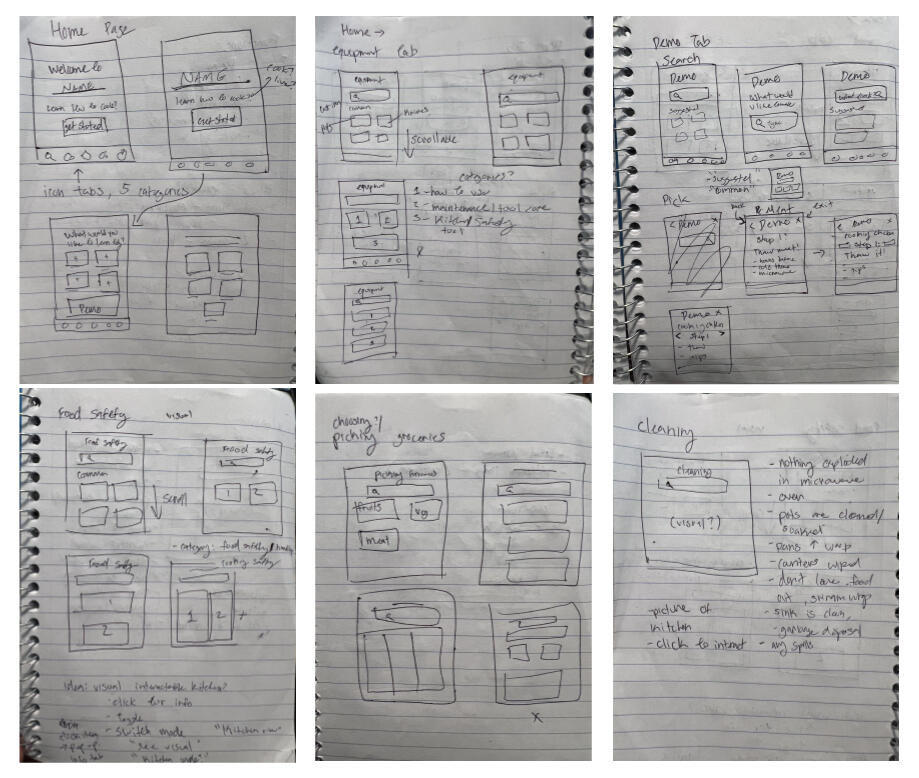 Home Page
Welcome to
NAME
learn how to cook?
get started
NAME
learn how to cook?
Get started
icon tabs, 5 categories
What would you
like to learn
Demo
Home →
equipment tab
equipment
common
pots
equipment
scrollable
categories?
1 - how to use
2 - maintenance / tool care
3 - Kitchen Safety
tool
equipment
1
2
3
equipment
1
2
3
Demo Tab
Search
Demo
Suggested
Demo
What would
u like
Demo
"Suggested"
"Common"
Pick
Demo
< Demo x
back
exit
< Demo x
Step 1:
Thaw meat!
microwave
< Demo x
cooking chicken
Step 1:
Thaw it!
- tips
Demo x
cooking chicken
< step 1 >
- thaw
- tips
Food Safety
visual
Food Safety
common
scroll
Food Safety
1
2
- category: food safety /
Food Safety
1
2
cooking safety
1
2
idea: visual interactable kitchen?
click for info
- toggle
- switch mode
"see visual"
"kitchen mode"
choosing /
picking groceries
Picking
fruits
veg
meat
x
cleaning
cleaning
(visual?)
- nothing exploded
in microwave
- oven
- pots are cleaned /
soaked
- pans
- counters wiped
- don't leave food
out,
- sink is clean,
- garbage disposal
- any spills
- picture of
kitchen
- click to interact